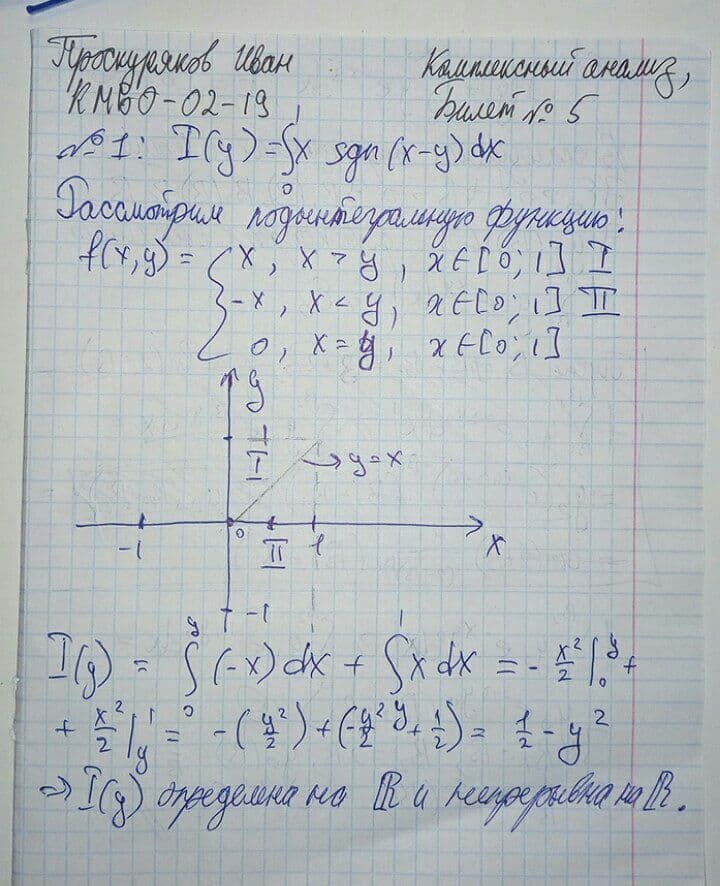 Проскуряков Иван
КМБО-02-19
Комплексный анализ,
Билет № 5
№1: I(y) = ∫₀¹ x sgn(x-y) dx
Рассмотрим подынтегральную функцию:
f(x,y) = { x, x > y, x∈[0;1] I
-x, x < y, x∈[0;1] II
0, x = y, x∈[0;1]
y
1
I
→ y=x
-1 0 II 1 x
-1
I(y) = ∫₀^y (-x) dx + ∫_y^1 x dx = - x²/2 |₀^y +
+ x²/2 |_y^1 = -(y²/2) + (-y²/2 + 1/2) = 1/2 - y²
⇒ I(y) определена на ℝ и непрерывна на ℝ.